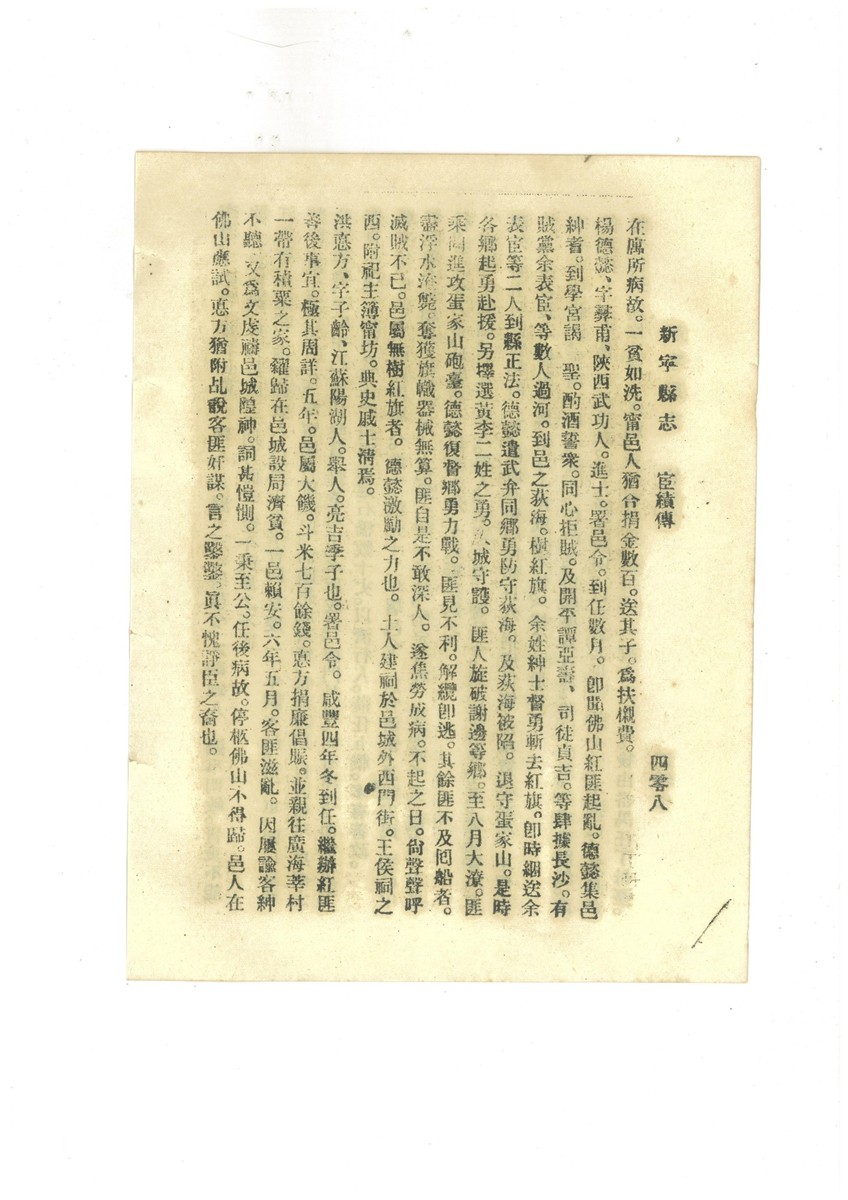 新寧縣志　宦績傳　四零八
在廨所病故。一貧如洗。甯邑人猶合捐金數百。送其子。爲扶櫬費。
楊德懿、字彝甫、陝西武功人。進士。署邑令。到任數月。卽聞佛山紅匪起亂。德懿集邑
紳耆。到學宮謁　聖。酌酒誓衆。同心拒賊。及開平譚亞壽、司徒貞吉。等肆據長沙。有
賊黨余表宦、等數人過河。到邑之荻海。樹紅旗。余姓紳士督勇斬去紅旗。卽時綑送余
表宦等二人到縣正法。德懿遣武弁同鄉勇防守荻海。及荻海被陷。退守蛋家山。是時
各鄉起勇赴援。另擇選黃李二姓之勇。入城守護。匪人旋破謝邊等鄉。至八月大潦。匪
乘間進攻蛋家山砲臺。德懿復督鄉勇力戰。匪見不利。解纜卽逃。其餘匪不及囘船者。
盡浮水淹斃。奪獲旗幟器械無算。匪自是不敢深入。遂焦勞成病。不起之日。尙聲聲呼
滅賊不已。邑屬無樹紅旗者。德懿激勵之力也。土人建祠於邑城外西門街。王侯祠之
西。附祀主簿甯坊。典史戚士淸焉。
洪悳方、字子齡、江蘇陽湖人。舉人。亮吉季子也。署邑令。咸豐四年冬到任。繼辦紅匪
善後事宜。極其周詳。五年。邑屬大饑。斗米七百餘錢。悳方捐廉倡賑。並親往廣海莘村
一帶有積粟之家。糴歸在邑城設局濟貧。一邑賴安。六年五月。客匪滋亂。因屢諭客紳
不聽。又爲文虔禱邑城隍神。詞甚愷惻。一秉至公。任後病故。停柩佛山不得歸。邑人在
佛山應試。悳方猶附乩說客匪奸謀。言之鑿鑿。眞不愧諍臣之裔也。